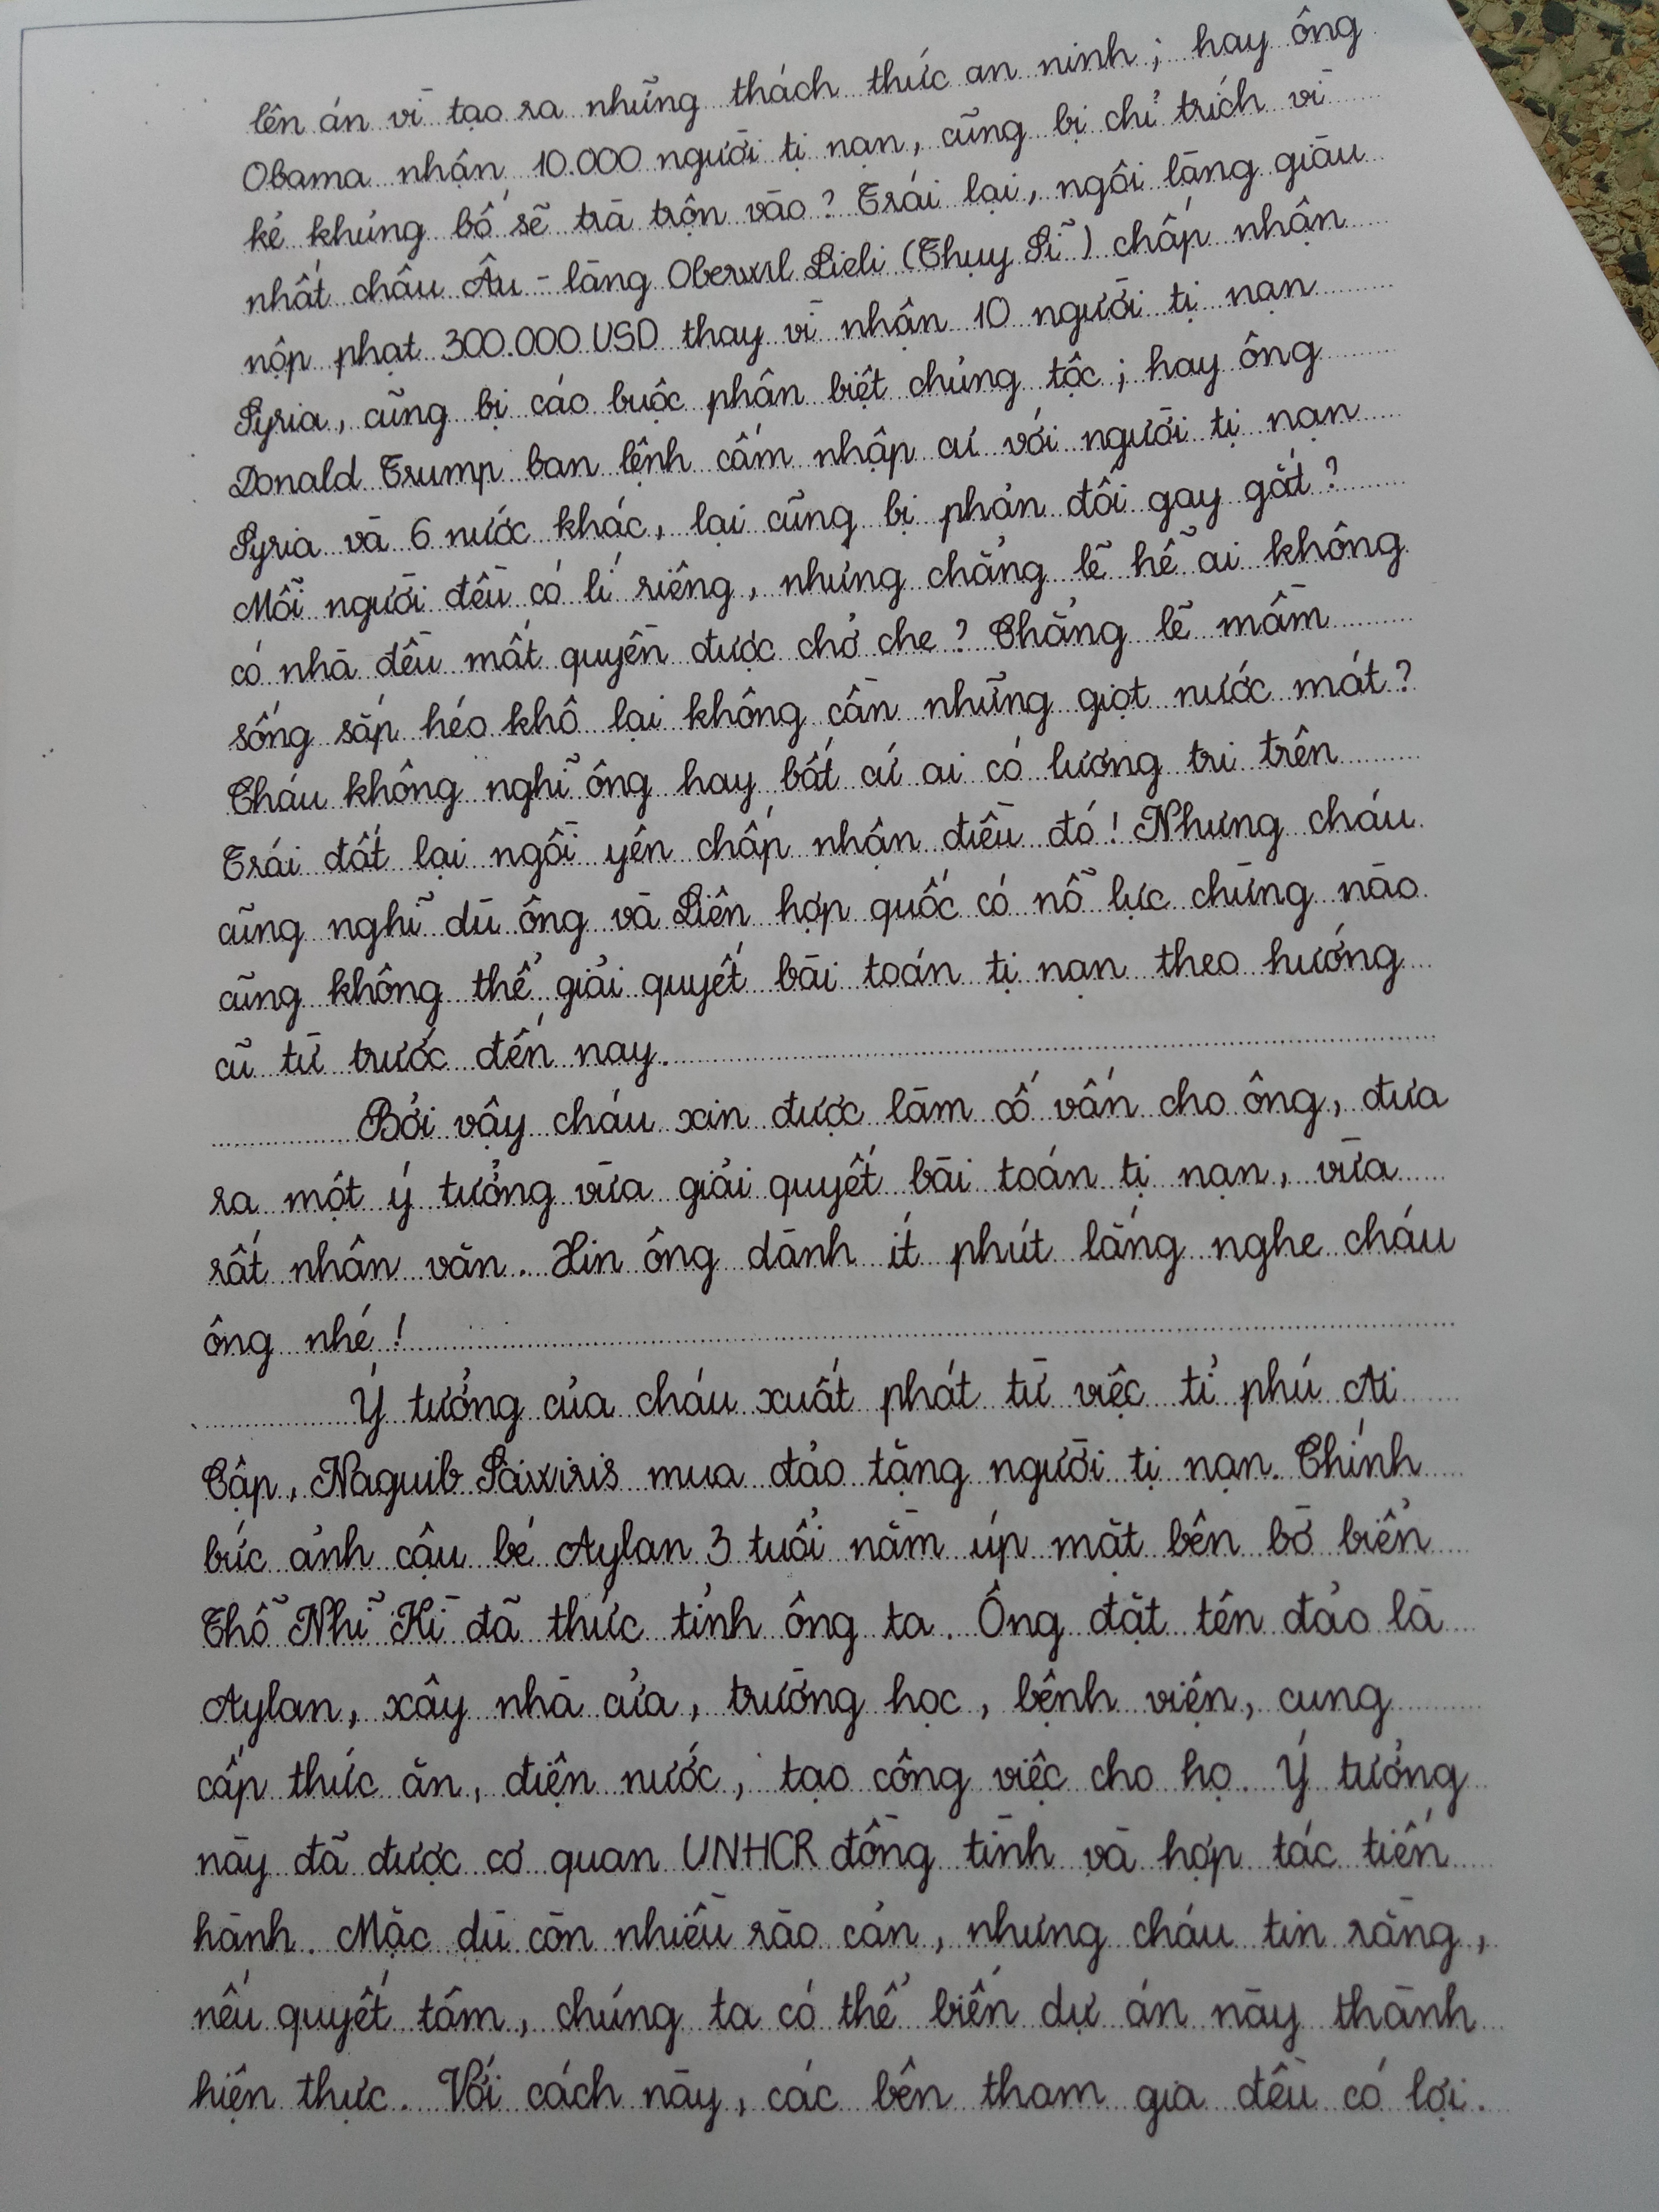 lên án vì tạo ra những thách thức an ninh; hay ông
Obama nhận 10.000 người tị nạn, cũng bị chỉ trích vì
kẻ khủng bố sẽ trà trộn vào? Trái lại, ngôi làng giàu
nhất châu Âu - làng Oberwil Lieli (Thụy Sĩ) chấp nhận
nộp phạt 300.000 USD thay vì nhận 10 người tị nạn
Syria, cũng bị cáo buộc phân biệt chủng tộc; hay ông
Donald Trump ban lệnh cấm nhập cư với người tị nạn
Syria và 6 nước khác, lại cũng bị phản đối gay gắt?
Mỗi người đều có lí riêng, nhưng chẳng lẽ hễ ai không
có nhà đều mất quyền được chở che? Chẳng lẽ mầm
sống sắp héo khô lại không cần những giọt nước mát?
Cháu không nghĩ ông hay bất cứ ai có lương tri trên
Trái đất lại ngồi yên chấp nhận điều đó! Nhưng cháu
cũng nghĩ dù ông và Liên hợp quốc có nỗ lực chừng nào
cũng không thể giải quyết bài toán tị nạn theo hướng
cũ từ trước đến nay.
Bởi vậy cháu xin được làm cố vấn cho ông, đưa
ra một ý tưởng vừa giải quyết bài toán tị nạn, vừa
rất nhân văn. Xin ông dành ít phút lắng nghe cháu
ông nhé!
Ý tưởng của cháu xuất phát từ việc tỉ phú Ai
Cập, Naguib Saiwiris mua đảo tặng người tị nạn. Chính
bức ảnh cậu bé Aylan 3 tuổi nằm úp mặt bên bờ biển
Thổ Nhĩ Kì đã thức tỉnh ông ta. Ông đặt tên đảo là
Aylan, xây nhà cửa, trường học, bệnh viện, cung
cấp thức ăn, điện nước, tạo công việc cho họ. Ý tưởng
này đã được cơ quan UNHCR đồng tình và hợp tác tiến
hành. Mặc dù còn nhiều rào cản, nhưng cháu tin rằng,
nếu quyết tâm, chúng ta có thể biến dự án này thành
hiện thực. Với cách này, các bên tham gia đều có lợi.